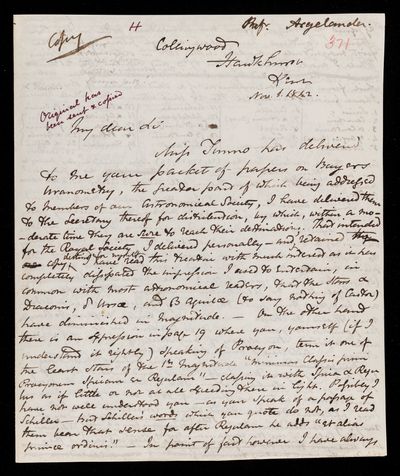 Copy
H
Prof. Argelander.
371
Collingwood
Hawkhurst
Kent
Nov. 1. 1842.
Original has
been sent & copied
My dear Sir
Miss Timno has delivered
to me your packet of papers on Bayer's
Uranometry, the greater part of which being addressed
to members of our Astronomical Society, I have delivered them
to the Secretary thereof for distribution, by which, within a mo-
-derate time they are sure to reach their destinations. That intended
for the Royal Society I delivered personally - and retained
copy for myself
I have read this treatise with much interest as it has
completely dissipated the impression I used to entertain, in
common with most astronomical readers, that the Stars α
Draconis, δ Ursæ and β Aquilæ (to say nothing of Castor)
have diminished in magnitude. - On the other hand
there is an expression in page 19 where you, yourself (if I
understand it rightly) speaking of Procyon, term it one of
the least Stars of the 1st Magnitude "minimis classis primæ
Procyonem Spicam et Regulum" classing it with Spica & Regu-
lus as if little or not at all exceeding these in light. Possibly I
have not well understood you - as you speak of a passage of
Schiller - but Schiller's words which you quote do not, as I read
them bear that sense for after Regulum he adds "et alias
primæ ordinis" - In point of fact however I have always,